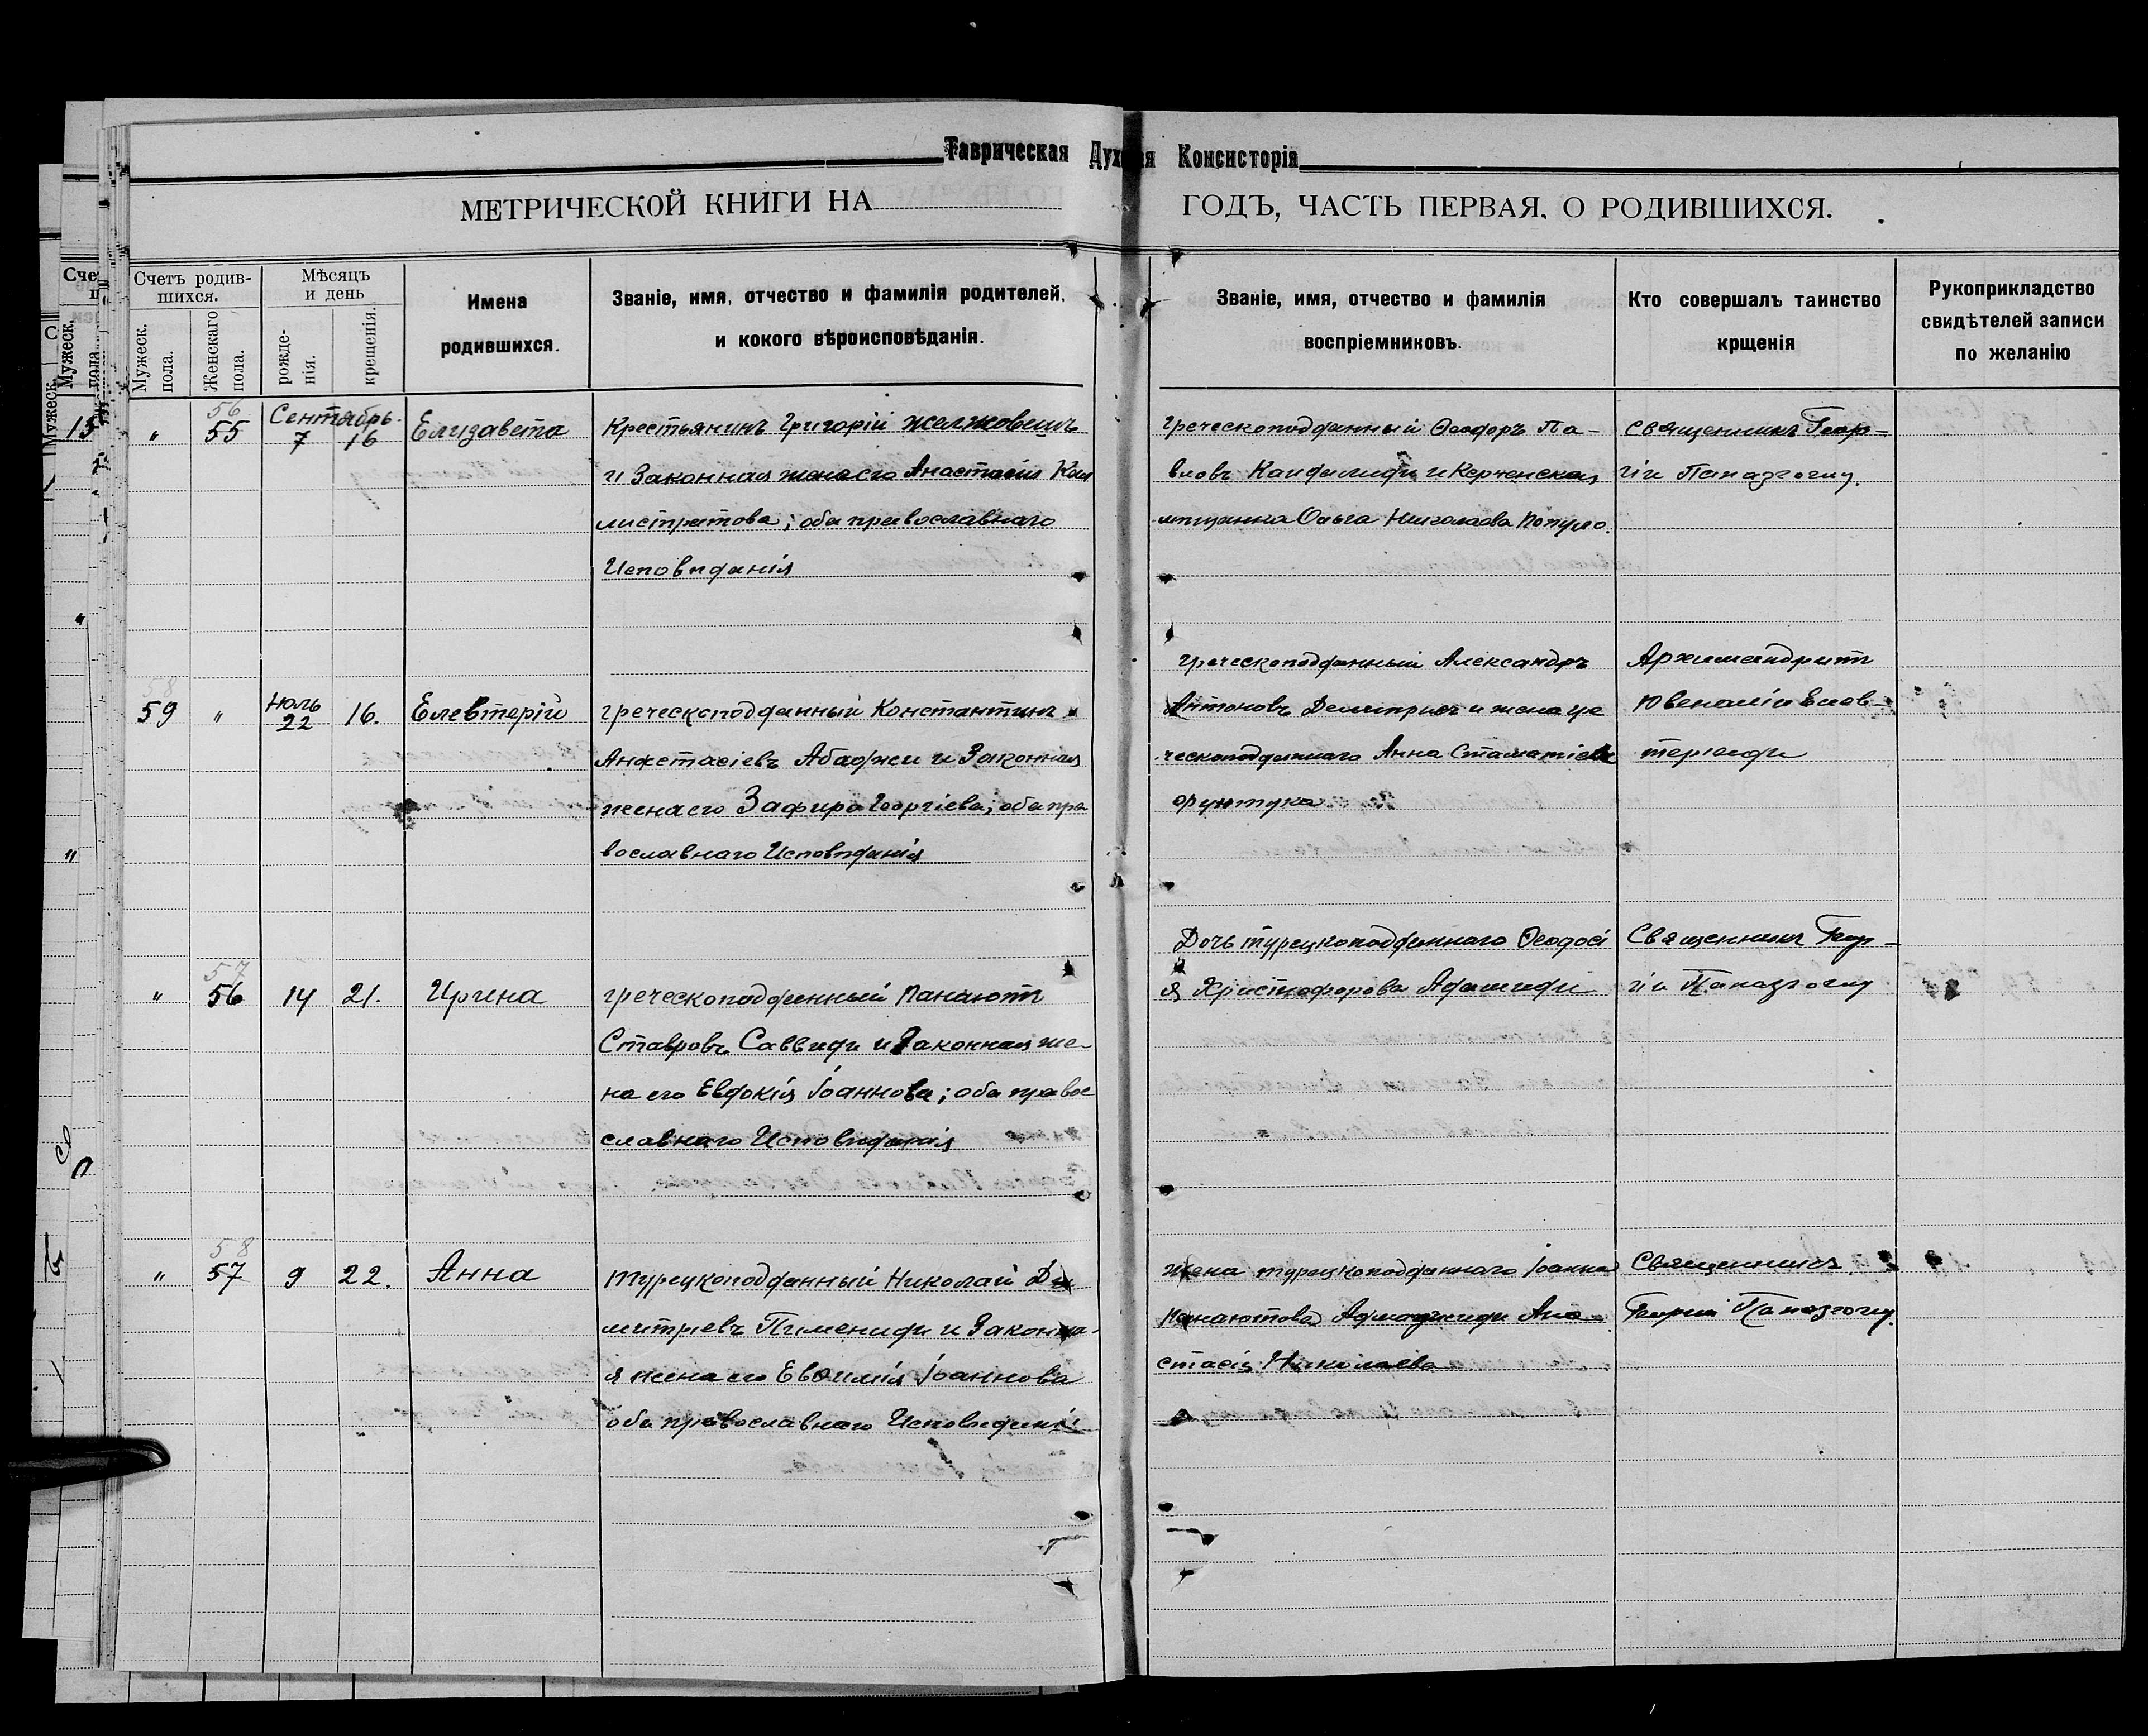 Таврическая Духовная Консисторія
МЕТРИЧЕСКОЙ КНИГИ НА
ГОДЪ, ЧАСТЬ ПЕРВАЯ, О РОДИВШИХСЯ.
Счетъ родив-
шихся.
Мужеск.
пола.
Женскаго
пола.
Мѣсяцъ
и день
рожде-
нія.
крещенія.
Имена
родившихся.
Званіе, имя, отчество и фамилія родителей,
и кокого вѣроисповѣданія.
Званіе, имя, отчество и фамилія
воспріемниковъ.
Кто совершалъ таинство
крщенія
Рукоприкладство
свидѣтелей записи
по желанію
56
" 55
Сентябрь
7 16
Елизавета
Крестьянинъ Григорій
и Законная жена его Анастасія Кал
листратова; оба православнаго
Исповѣданія
греческоподданный Ѳеодоръ Па-
вловъ и Керченская
мѣщанка Ольга Николаова
Священникъ Геор-
гій Папазоглу.
58
59 "
Июль
22 16.
Елевтерій
греческоподданный Константинъ
Анастасіевъ Абаджи и Законная
жена его Зафира Георгіева; оба пра
вославнаго Исповѣданія
греческоподданный Александръ
Антоновъ и жена гре
ческоподданнаго Анна Стаматіева
Архимандритъ
Ювеналій Елев-
теріади
57
" 56 14 21.
Ирина
греческоподданный Панаютъ
Ставровъ Саввиди и Законная же-
на его Евдокія Іоаннова; оба правос
славнаго Исповѣданія
Дочь турецкоподданнаго Ѳеодосі
я Христофорова
Священникъ Геор-
гій Папазоглу
58
" 57 9 22.
Анна
турецкоподданный Николай Ди
митріевъ Пимениди и Законна-
я жена его Евѳимія Іоаннова
оба православнаго Исповѣданія
жена турецкоподданнаго Іоанна
Панаютова Ана-
стасія Николаева
Священникъ
Георгій Папазоглу.